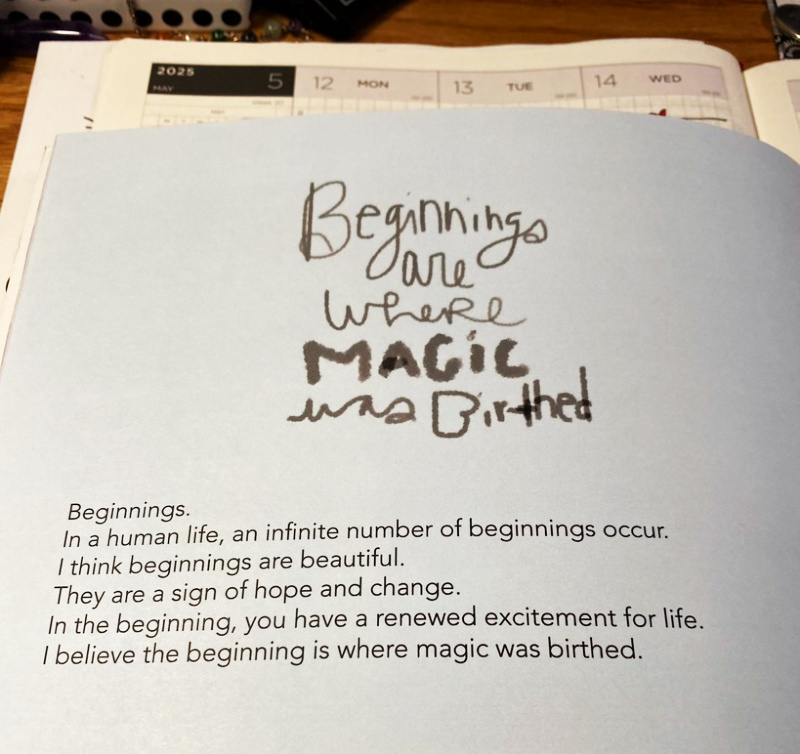 2025 5 12 MON 13 TUE 14 WED
MAY
Beginnings
are
where
MAGIC
was Birthed
Beginnings.
In a human life, an infinite number of beginnings occur.
I think beginnings are beautiful.
They are a sign of hope and change.
In the beginning, you have a renewed excitement for life.
I believe the beginning is where magic was birthed.